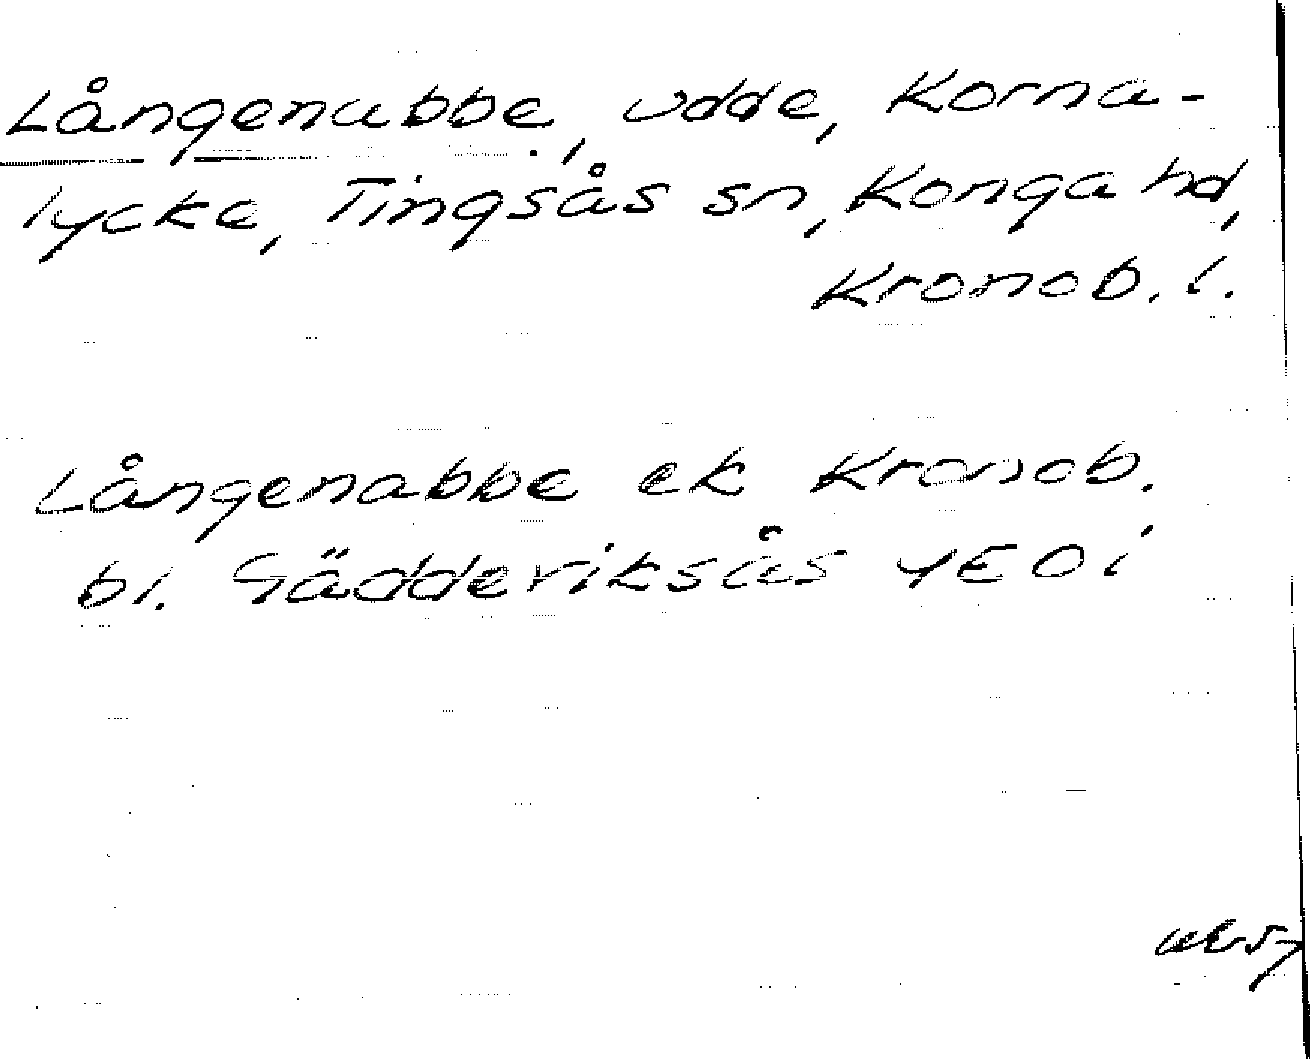 Långenubbe, udde, Korna-
lycke, Tingsås sn, Konga hd,
Kronob. l.
Långenabbe ek Kronob.
bl. Gädderiksås 4E0i